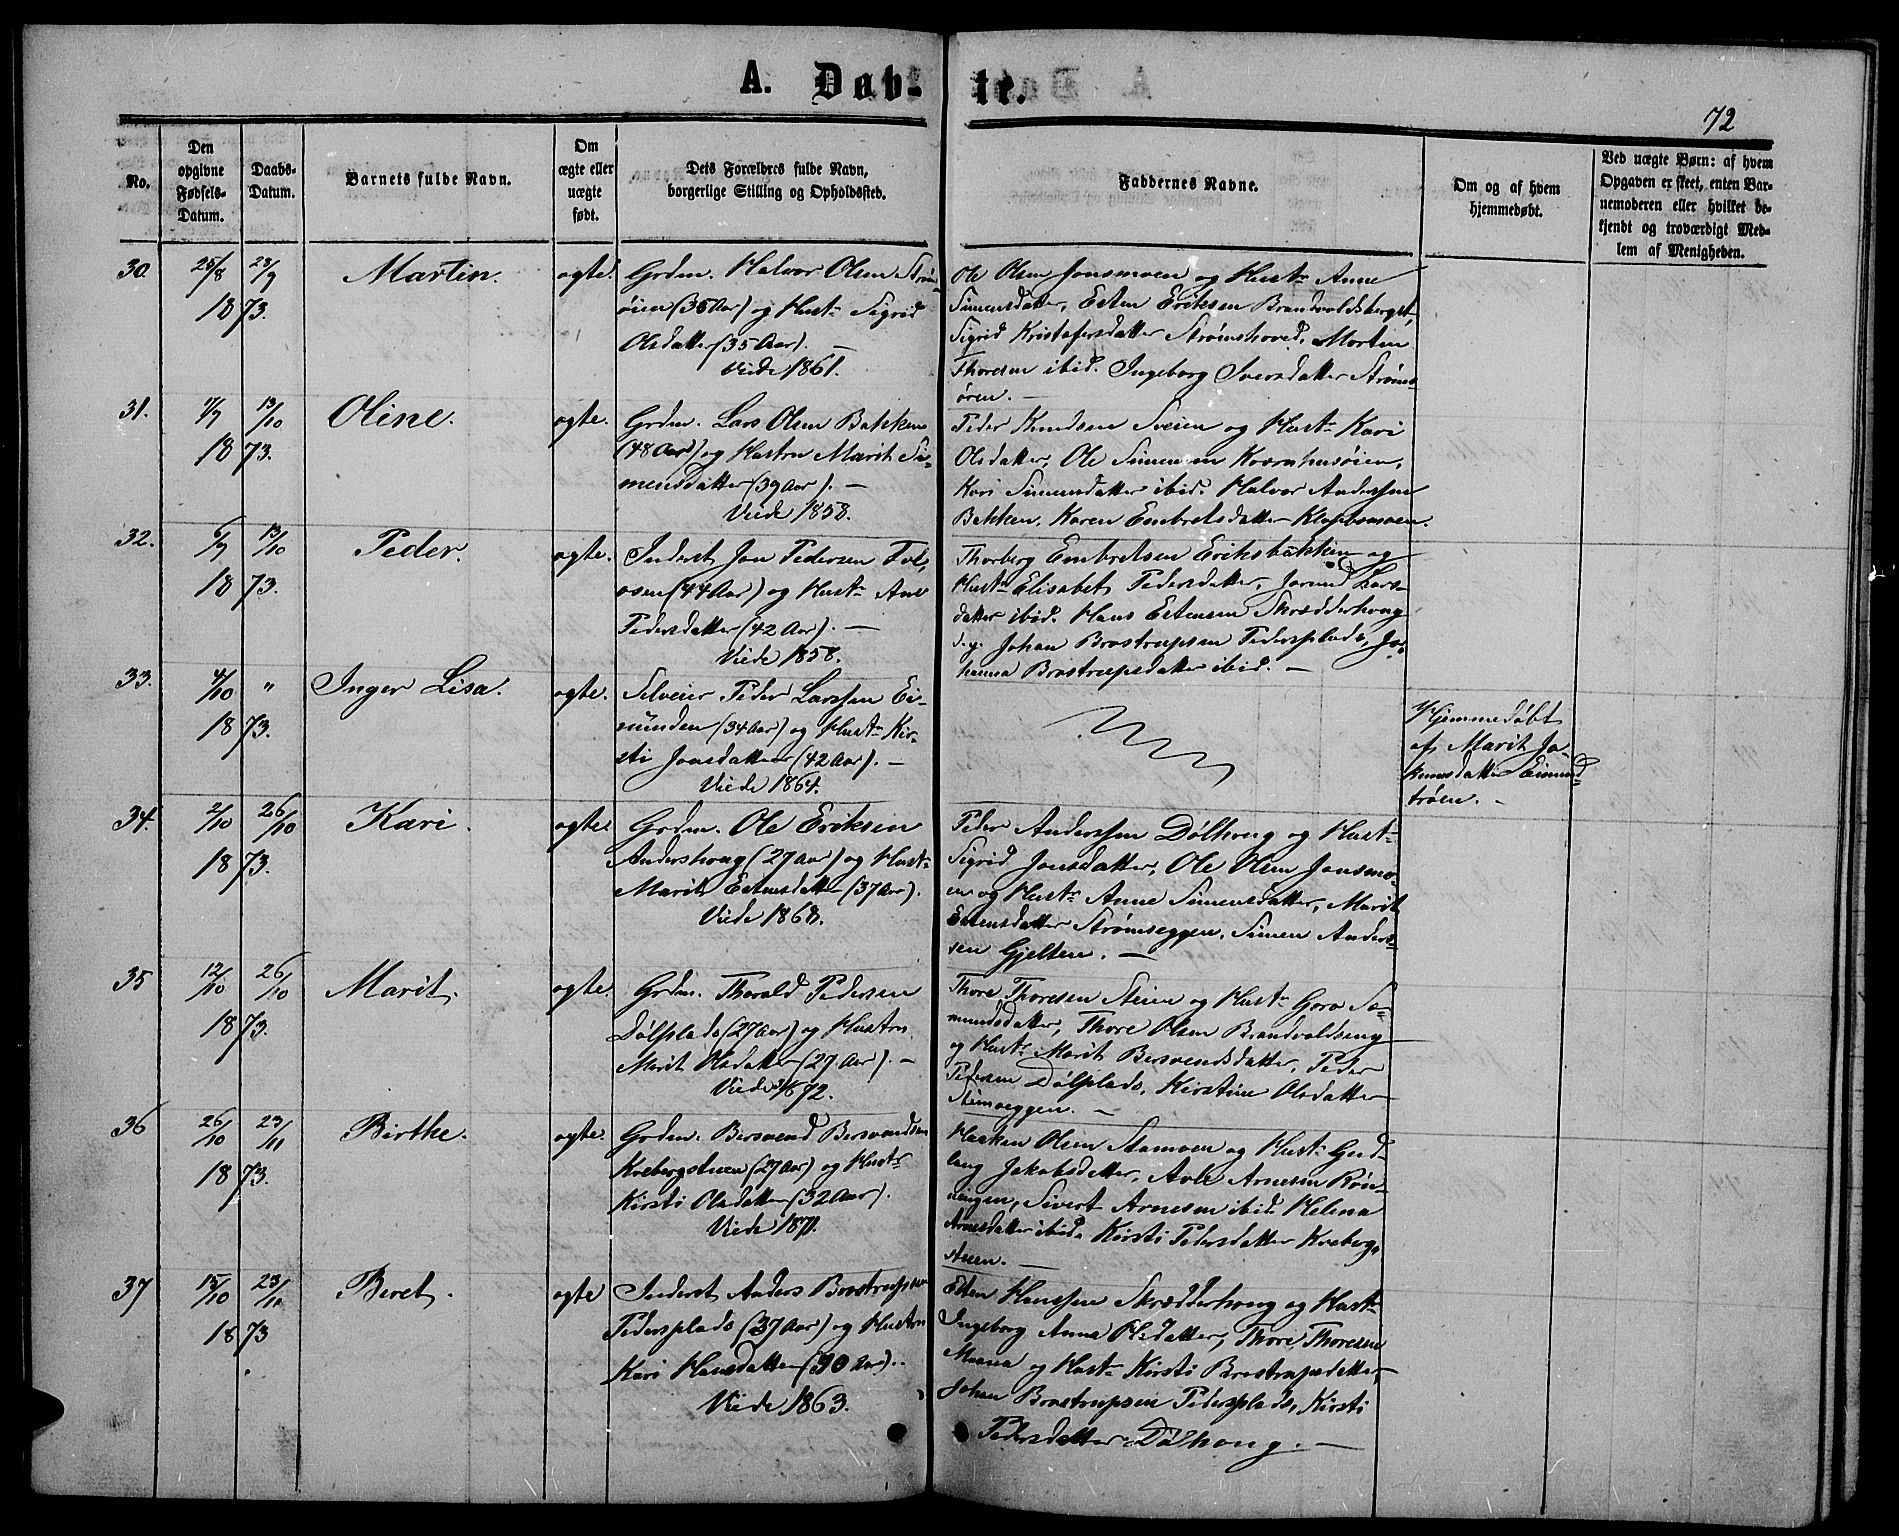 A. Døb-
te.
72
No.
Den
opgivne
Fødsels-
Datum.
Daabs-
Datum.
Barnets fulde Navn.
Om
ægte eller
uægte
født.
Dets Forældres fulde Navn,
borgerlige Stilling og Opholdssted.
Faddernes Navne.
Om og af hvem
hjemmedøbt.
Ved uægte Børn: af hvem
Opgaven er skeet, enten Bar-
nemoderen eller hvilket be-
kjendt og troværdigt Med-
lem af Menigheden.
30.
25/8
23/9
1873.
Martin.
ægte.
Grdm. Halvor Olsen Strøm-
øien (35 Aar) og Hustr Sigrid
Olsdatter (35 Aar). —
Viede 1861.
Ole Olsen Jonsmoen og Hustr Anne
Simensdatter, Esten Eriksen Brandvoldsberget,
Sigrid Kristofersdatter Strømshoved, Morten
Thoresen ibid. Ingeborg Sversdatter Strøms-
øren. —
31.
13/10
1873.
Oline.
ægte.
Grdm. Lars Olsen Bakken
(48 Aar) og Hustru Marit Si-
mensdatter (39 Aar). —
Viede 1858.
Peder Knudsen Sveien og Hustr Kari
Olsdatter, Ole Simensen Kværnhusøien,
Kari Simensdatter ibid. Halvor Anderssen
Bakken. Karen Embretsdatter Kloppmoen.
32.
6/9
13/10
1873.
Peder.
ægte.
Inderst Jon Pedersen
osen (44 Aar) og Hustr Ane
Pedersdatter (42 Aar). —
Viede 1858.
Thorberg Embretsen Eriksbakken og
Hustr Elisabet Pedersdatter, Jorund Lars-
datter ibid. Hans Estensen Skrædderhoug
d.y. Johan Brostrupsen Pedersplads, Jo-
hanna Brostrupsdatter ibid. —
33.
4/10
"
1873.
Inger Lisa.
ægte.
Selveier Peder Larssen Ei-
münden (34 Aar) og Hustr Kir-
sti Jonsdatter (42 Aar). —
Viede 1864.
Hjemmedøbt
af Marit Jo-
hannesdatter Eimund-
trøen. —
34.
2/10
26/10
1873.
Kari.
ægte.
Grdm. Ole Eriksen
Andershoug (27 Aar) og Hustr
Marit Estensdatter (37 Aar).
Viede 1868.
Peder Anderssen Dølhoug og Hustr
Sigrid Jonsdatter, Ole Olsen Jonsmo-
en og Hustr Anne Simensdatter, Marit
Estensdatter Strømseggen, Simen Anders-
sen Gjelten. —
35
12/10
26/10
1873.
Marit.
ægte.
Grdm. Thorald Pedersen
Dølplads (27 Aar) og Hustru
Marit Olsdatter (27 Aar). —
Viede 1872.
Thore Thoresen Steien og Hustr Goro Sa-
mundsdatter, Thore Olsen Brandvoldseng
og Hustr Marit Bersvendsdatter, Peder
Pedersen Dølplads, Kirstine Olsdatter
36
26/10
23/11
1873.
Birthe.
ægte.
Grdm. Bersvend Bersvendsen
Krebergstuen (27 Aar) og Hustr
Kirsti Olsdatter (32 Aar).
Viede 1871.
Haaken Olsen Stamoen og Hustr Gud-
laug Jakobsdatter, Avle Arnesen Røn-
ningen, Sivert Arnesen ibid. Helena
Arnesdatter ibid. Kirsti Pedersdatter Krebergs-
stuen. —
37
15/10
23/11
1873
Beret.
ægte
Inderst Anders Brostrupsen
Pedersplads (37 Aar) og Hustru
Kari Hansdatter (30 Aar).
Viede 1863.
Esten Hanssen Skrædderhoug og Hustr
Ingeborg Anna Olsdatter, Thore Thoresen
Moana og Hustr Kirsti Brostrupsdatter,
Johan Brostrupsen Pedersplads, Kirsti
Pedersdatter Dølhoug. —